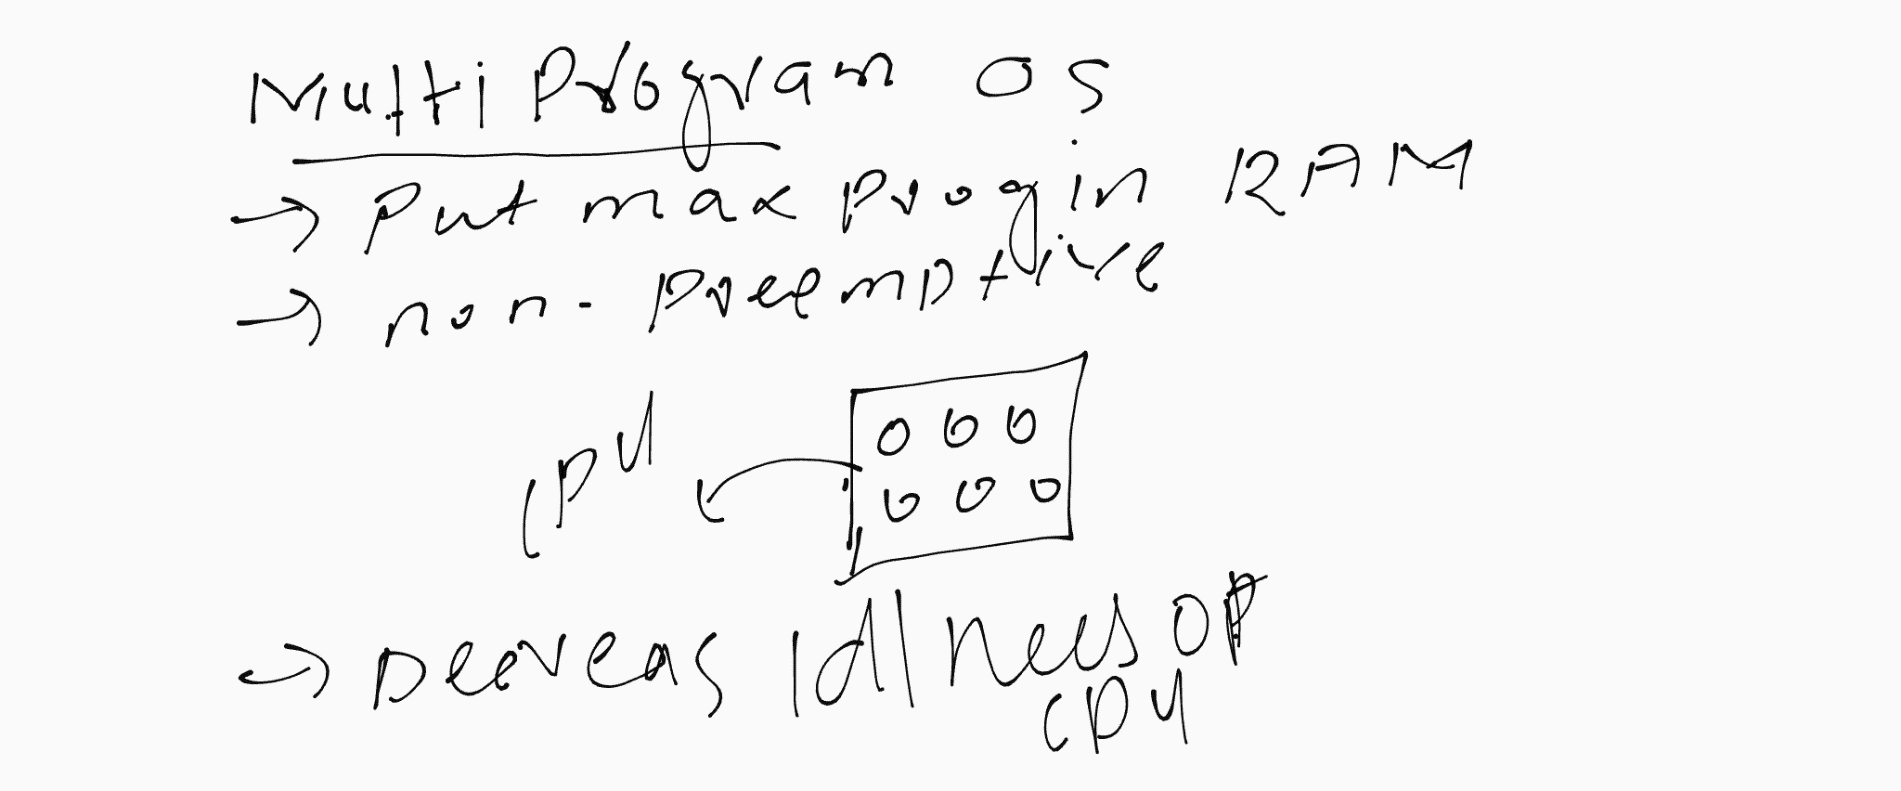 Multi Program OS
→ Put max prog in RAM
→ non-preemptive
CPU
→ Decreas Idlness of
CPU